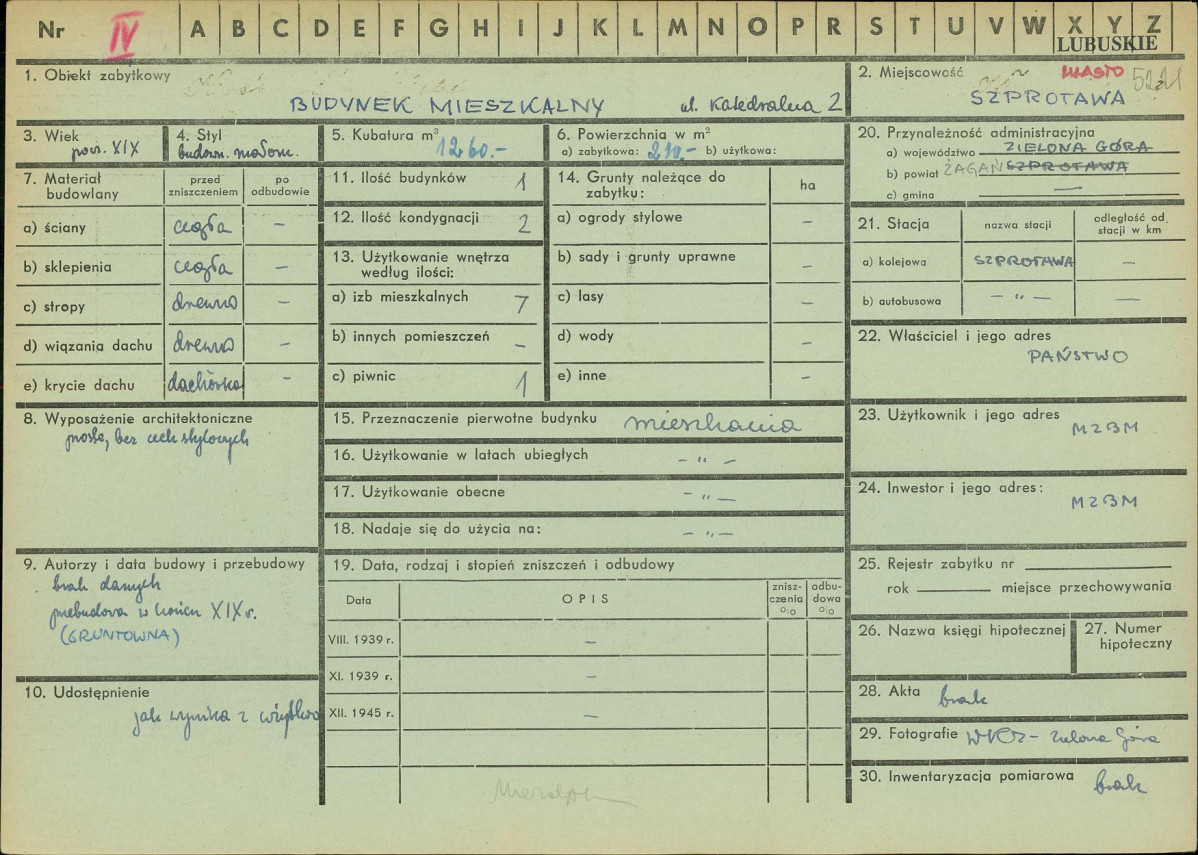 Nr IV A B C D E F G H I J K L M N O P R S T U V W X Y Z
LUBUSKIE
1. Obiekt zabytkowy
BUDYNEK MIESZKALNY ul. Katedralna 2
2. Miejscowość MIASTO 5221
SZPROTAWA
3. Wiek
pocz. XIX
4. Styl
budown. małom.
5. Kubatura m³
1260.-
6. Powierzchnia w m²
a) zabytkowa: 210.- b) użytkowa:
7. Materiał budowlany
przed zniszczeniem
po odbudowie
a) ściany cegła –
b) sklepienia cegła –
c) stropy drewno –
d) wiązania dachu drewno –
e) krycie dachu dachówka –
8. Wyposażenie architektoniczne
proste, bez cech stylowych
9. Autorzy i data budowy i przebudowy
brak danych
przebudowa w końcu XIX w.
(GRUNTOWNA)
10. Udostępnienie
jak wynika z
11. Ilość budynków 1
12. Ilość kondygnacji 2
13. Użytkowanie wnętrza
według ilości:
a) izb mieszkalnych 7
b) innych pomieszczeń –
c) piwnic 1
14. Grunty należące do
zabytku:
ha
a) ogrody stylowe –
b) sady i grunty uprawne –
c) lasy –
d) wody –
e) inne –
15. Przeznaczenie pierwotne budynku mieszkania
16. Użytkowanie w latach ubiegłych – " –
17. Użytkowanie obecne – " –
18. Nadaje się do użycia na: – " –
19. Data, rodzaj i stopień zniszczeń i odbudowy
Data
OPIS
znisz-
czenia
%
odbu-
dowa
%
VIII. 1939 r. –
XI. 1939 r. –
XII. 1945 r. –
20. Przynależność administracyjna
a) województwo ZIELONA GÓRA
b) powiat ŻAGAŃ SZPROTAWA
c) gmina —
21. Stacja
nazwa stacji
odległość od
stacji w km
a) kolejowa SZPROTAWA –
b) autobusowa – " – —
22. Właściciel i jego adres
PAŃSTWO
23. Użytkownik i jego adres
MZBM
24. Inwestor i jego adres:
MZBM
25. Rejestr zabytku nr
rok miejsce przechowywania
26. Nazwa księgi hipotecznej
27. Numer
hipoteczny
28. Akta brak
29. Fotografie WKZ – Zielona Góra
30. Inwentaryzacja pomiarowa brak